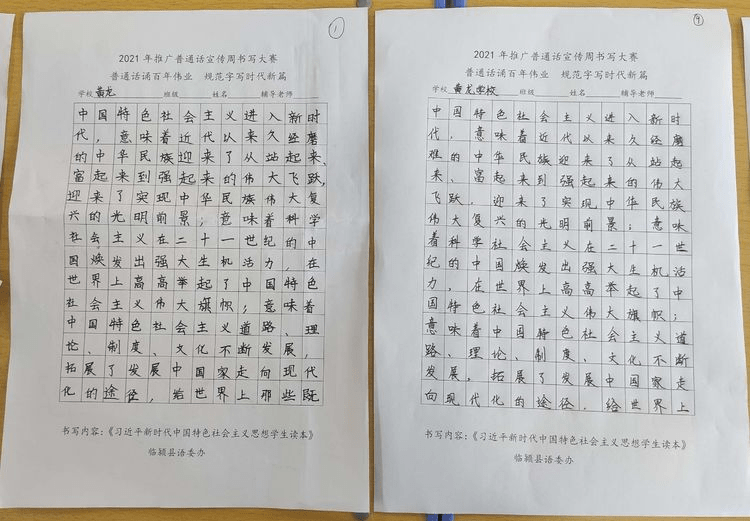 1
2021年推广普通话宣传周书写大赛
普通话诵百年伟业 规范字写时代新篇
学校 黄龙 班级 姓名 辅导老师
中国特色社会主义进入新时
代，意味着近代以来久经磨
的中华民族迎来了从站起来、
富起来到强起来的伟大飞跃，
迎来了实现中华民族伟大复
兴的光明前景；意味着科学
社会主义在二十一世纪的中
国焕发出强大生机活力，在
世界上高高举起了中国特色
社会主义伟大旗帜；意味着
中国特色社会主义道路、理
论、制度、文化不断发展，
拓展了发展中国家走向现代
化的途径，给世界上那些既
书写内容：《习近平新时代中国特色社会主义思想学生读本》
临颍县语委办
9
2021年推广普通话宣传周书写大赛
普通话诵百年伟业 规范字写时代新篇
学校 黄龙学校 班级 姓名 辅导老师
中国特色社会主义进入新时
代，意味着近代以来久经磨
难的中华民族迎来了从站起
来、富起来到强起来的伟大
飞跃，迎来了实现中华民族
伟大复兴的光明前景；意味
着科学社会主义在二十一世
纪的中国焕发出强大生机活
力，在世界上高高举起了中
国特色社会主义伟大旗帜；
意味着中国特色社会主义道
路、理论、制度、文化不断
发展，拓展了发展中国家走
向现代化的途径，给世界上
书写内容：《习近平新时代中国特色社会主义思想学生读本》
临颍县语委办